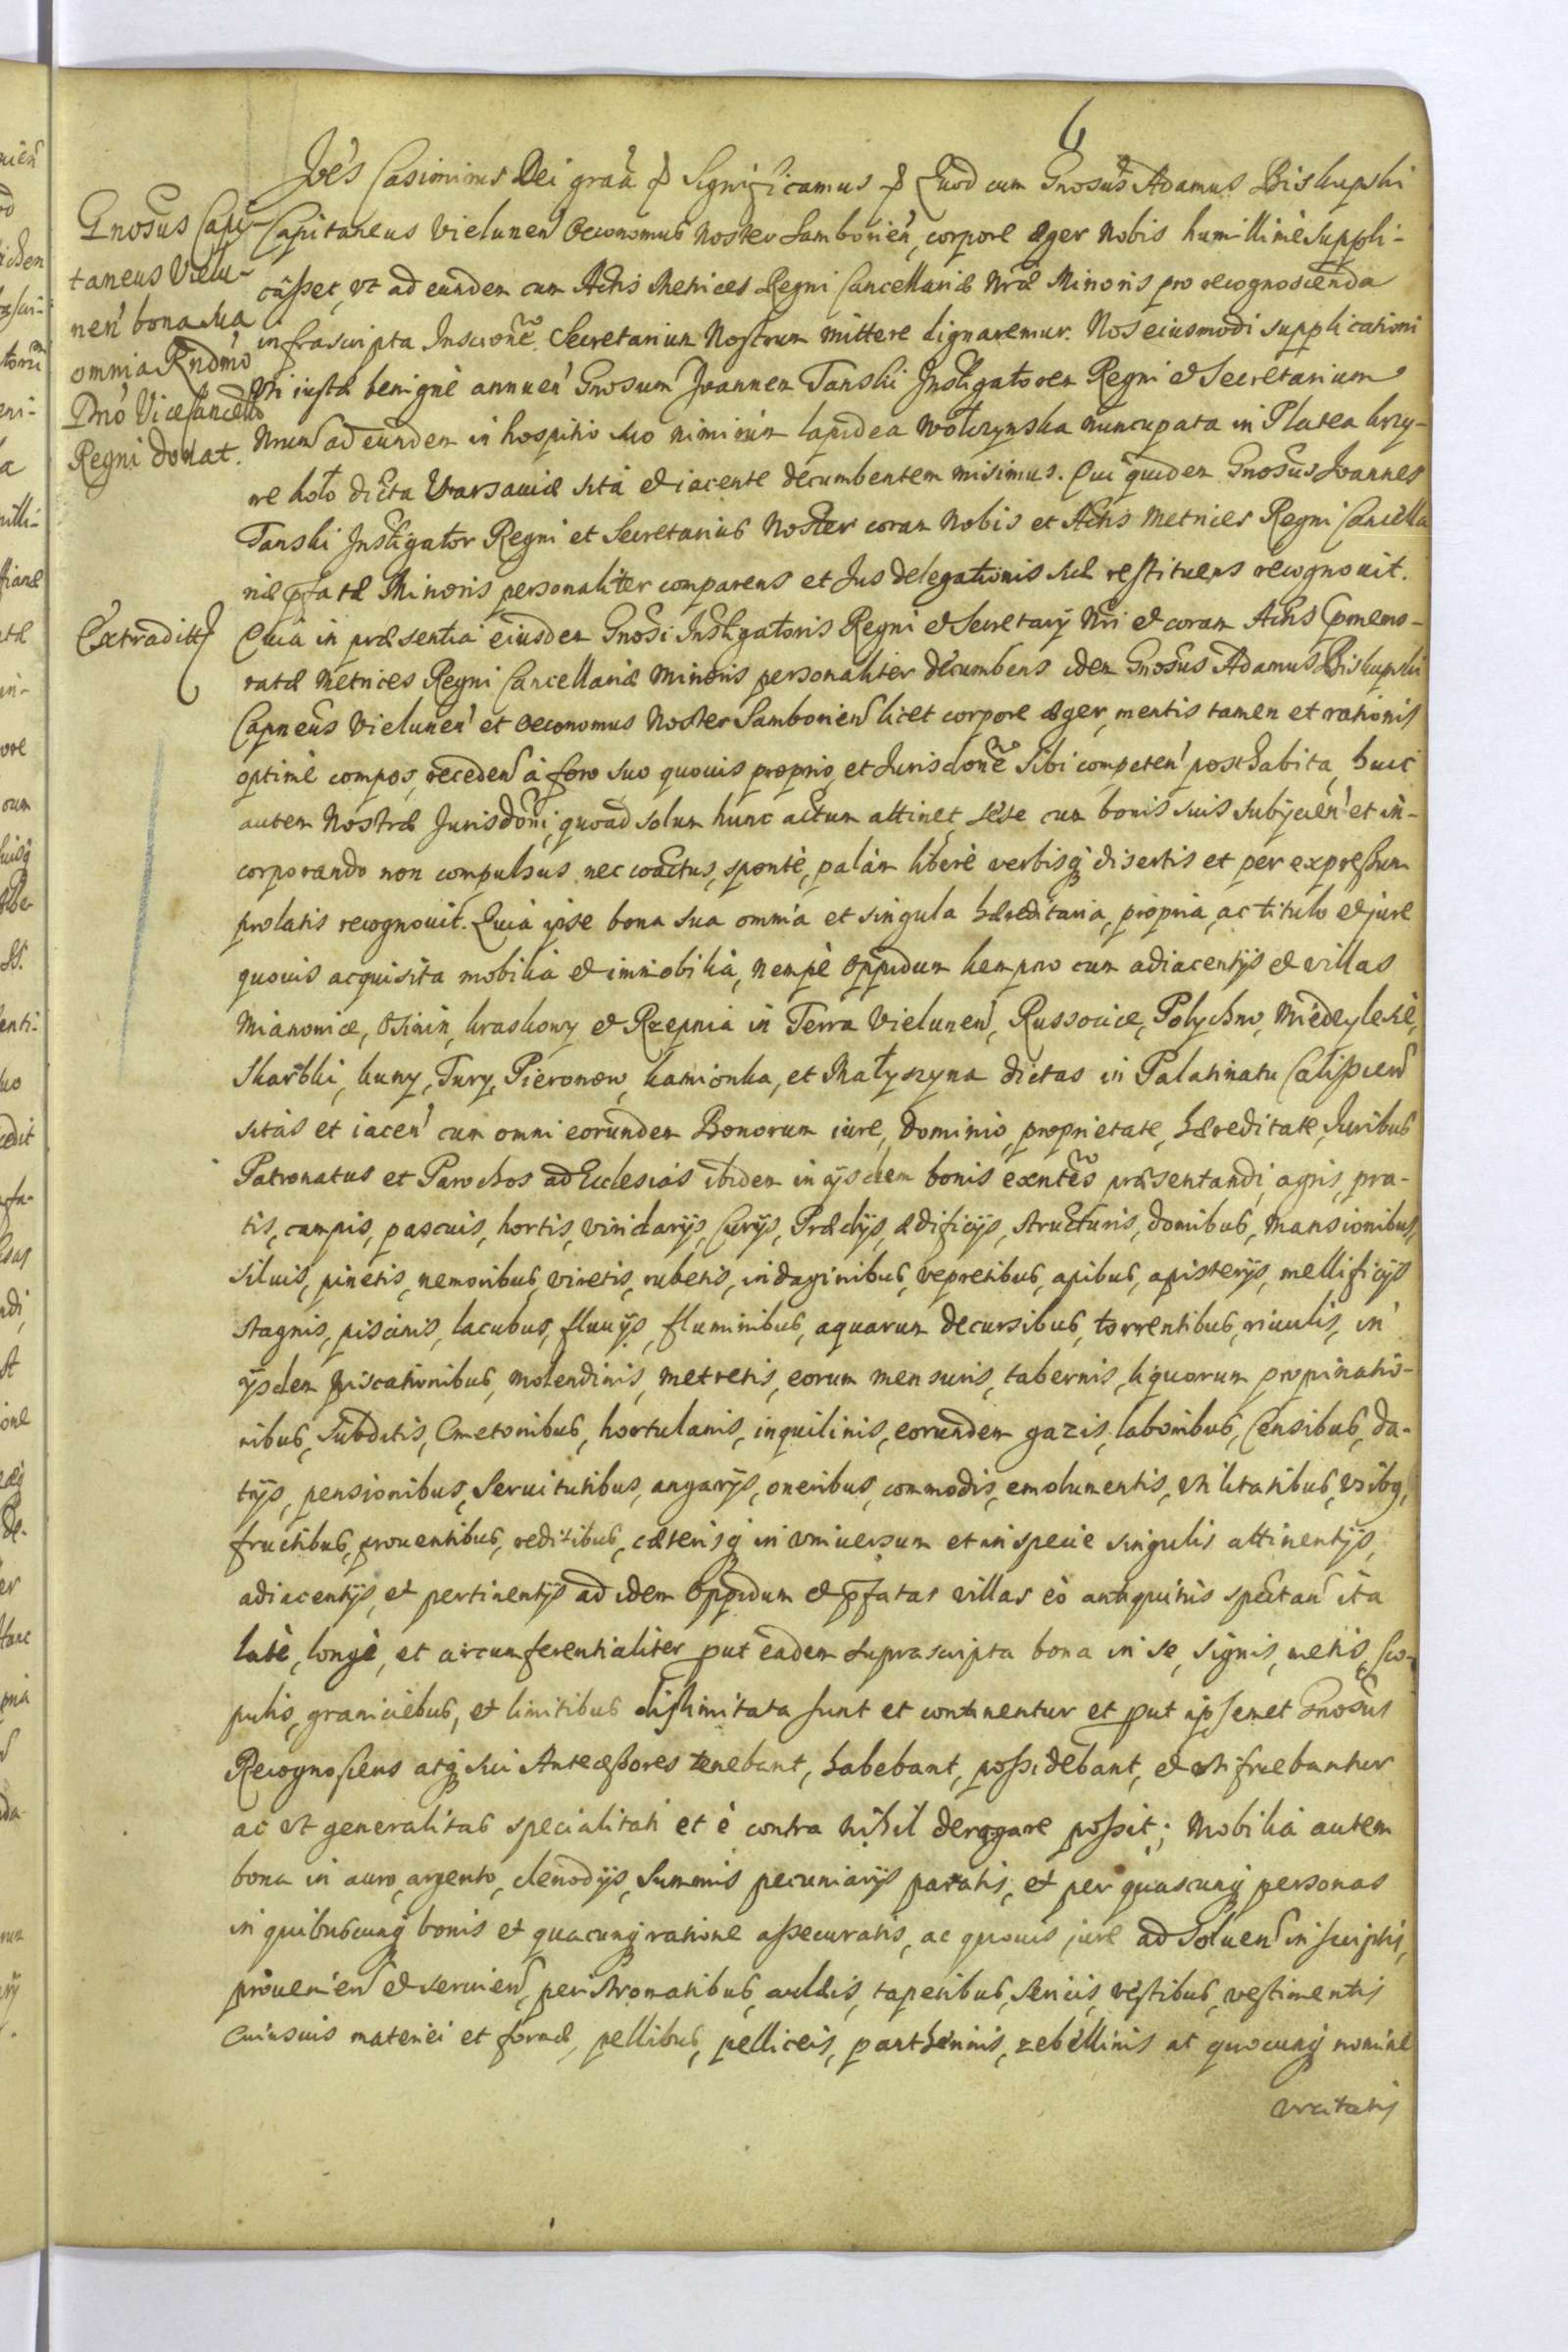 6
Joẽs Casimirus Dei graã & Significamus & Quod cum Gnosus Adamus Biskupski
Gnosus Capi-
taneus Vielu-
nen bona sua
omnia Rndmo
Dno Vicecancello
Regni donat.
Capitaneus Vielunen Oeconomus Noster Samborien, corpore æger Nobis humillimè suppli-
casset, vt ad eundem cum Actis Metrices Regni Cancellariæ Nræ Minoris pro recognoscenda
infrascripta Inscrone Secretarium Nostrum mittere dignaremur. Nos eiusmodi supplicationi
vti iustæ benignè annuen Gnosum Joannem Tanski Instigatorem Regni et Secretarium
Nrum ad eundem in hospitio suo nimirum lapidea Wolczynska nuncupata in Platea krzy-
we koło dicta Varsauiæ sita et iacente decumbentem misimus. Qui quidem Gnosus Joannes
Tanski Instigator Regni et Secretarius Noster coram Nobis et Actis Metrices Regni Cancella
riæ pfatæ Minoris personaliter comparens et Jus delegationis suæ restituens recognouit.
Extradit
Quia in præsentia eiusdem Gnosi Instigatoris Regni et Secretarij Nri et coram Actis Cpmemo-
ratæ Metrices Regni Cancellariæ Minoris personaliter decumbens idem Gnosus Adamus Biskupski
Capneus Vielunen et Oeconomus Noster Samborien licet corpore æger, mentis tamen et rationis
optimè compos, receden à foro suo quouis proprio, et Jurisdone sibi competen posthabita, huic
autem Nostræ Jurisdoni, quoad solum hunc actum attinet, sese cum bonis suis subijcien et in-
corporando non compulsus nec coactus, spontè, palàm liberè verbisq disertis et per expressum
prolatis recognouit. Quia ipse bona sua omnia et singula hæreditaria, propria, ac titulo et jure
quouis acquisita mobilia et immobilia, nempè Oppidum kempno cum adiacentijs et villas
Mianowice, Osinin, kraskowy et Rzepnia in Terra Vielunen, Russocice, Polychno, Miedzylesie,
Skarbki, kuny, Tury, Pieronow, kamionka, et Małyszyna dictas in Palatinatu Calissien
sitas et iacen cum omni eorundem Bonorum iure, dominio, proprietate, hæreditate, Juribus
Patronatus et Parochos ad Ecclesias ibidem in ijsdem bonis exntẽs præsentandi, agris, pra-
tis, campis, pascuis, hortis, viridarijs, Curijs, Prædijs, ædificijs, structuris, domibus, mansionibus,
siluis, pinetis, nemoribus, viretis, rubetis, indaginibus, vepretibus, apibus, apisterijs, mellificijs
stagnis, piscinis, lacubus, fluuijs, fluminibus, aquarum decursibus, torrentibus, riuulis, in
ijsdem piscationibus, molendinis, metretis, eorum mensuris, tabernis, liquorum propinatio-
nibus, subditis, Cmetonibus, hortulanis, inquilinis, eorundem gazis, laboribus, Censibus, da-
tijs, pensionibus, Seruitutibus, angarijs, oneribus, commodis, emolumentis, vtilitatibus, vsibq,
fructibus, prouentibus, reditibus, cæterisq in vniuersum et in specie singulis attinentijs,
adiacentijs, et pertinentijs ad idem Oppidum et pfatas villas eò antiquitùs spectan ita
latè, longè, et circumferentialiter put eadem suprascripta bona in se, signis, metis, sco-
pulis, graniciebus, et limitibus dislimitata sunt et continentur et put ipsemet Gnosus
Recognoscens atq sui Antecessores tenebant, habebant, possidebant, et vtifruebantur
ac vt generalitas specialitati et è contra nihil derogare possit; Mobilia autem
bona in auro, argento, clenodijs, Summis pecuniarijs paratis, et per quascunq personas
in quibuscunq bonis et quacunq ratione assecuratis, ac quouis jure ad soluen inscriptis,
prouenien et seruien, peristromatibus, aulæis, tapetibus, sericis, vestibus, vestimentis
Cuiusuis materiei et formæ, pellibus, pelliceis, partheninis, zebellinis at quocunq nomine
vocitatis